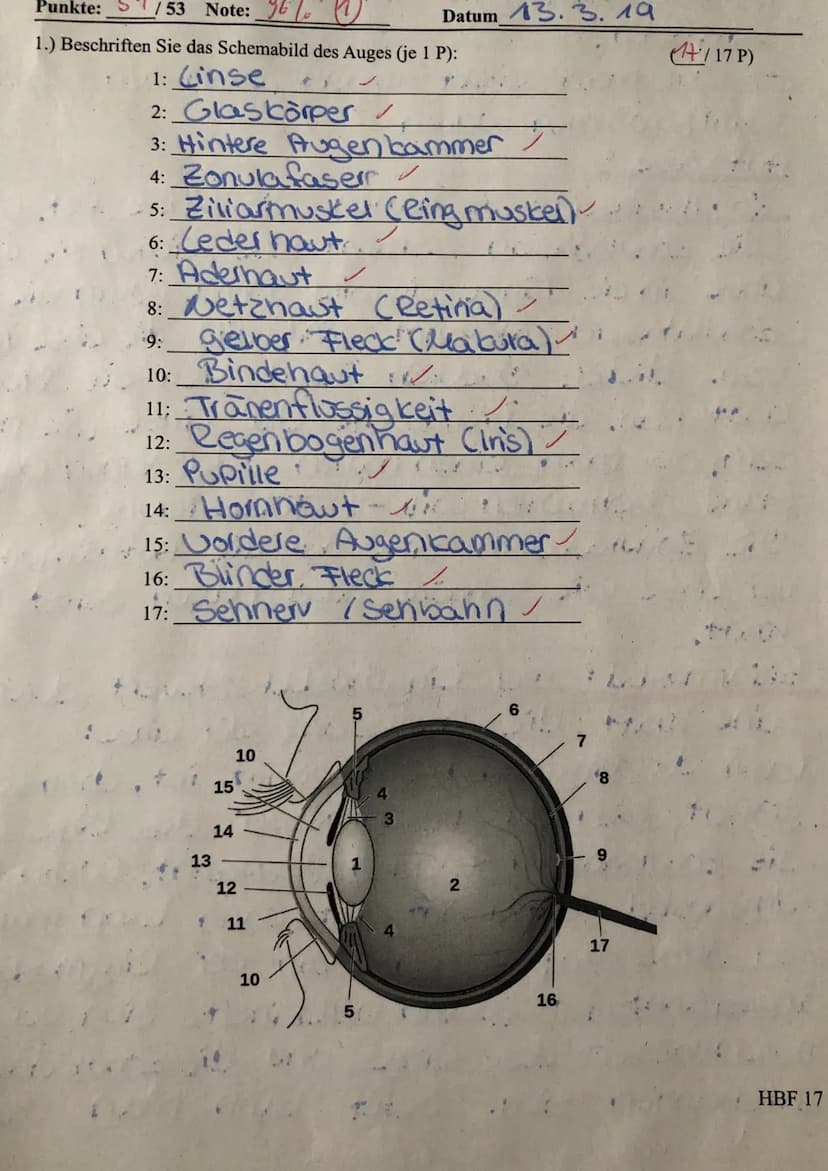 Punkte: 51 / 53 Note: 96% (1) Datum 13.3.19
1.) Beschriften Sie das Schemabild des Auges (je 1 P): (17 / 17 P)
1: Linse
2: Glaskörper
3: Hintere Augenkammer
4: Zonulafasern
5: Ziliarmuskel (Ringmuskel)
6: Lederhaut
7: Aderhaut
8: Netzhaut (Retina)
9: gelber Fleck (Makura)
10: Bindehaut
11: Tränenflüssigkeit
12: Regenbogenhaut (Iris)
13: Pupille
14: Hornhaut
15: Vordere Augenkammer
16: Blinder Fleck
17: Sehnerv / Sehbahn
5 6
7
10
15 4 8
3
14
13 1 9
12 2
11 4
17
10
5 16
HBF 17